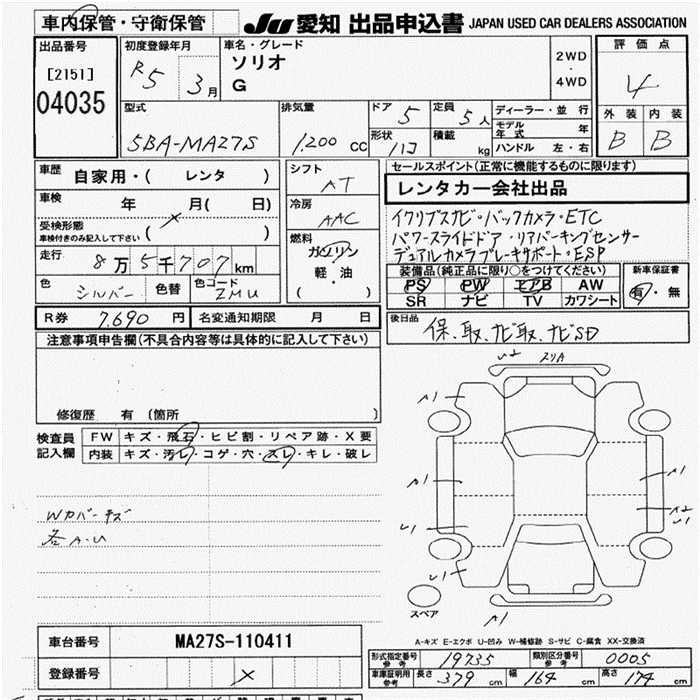 車内保管・守衛保管
JU 愛知 出品申込書 JAPAN USED CAR DEALERS ASSOCIATION
出品番号
[2151]
04035
初度登録年月
R5 3月
車名・グレード
ソリオ
G
2WD
・
4WD
評価点
4
外装 内装
B B
型式
5BA-MA27S
排気量
1,200 CC
ドア 5
形状 ハコ
定員 5人
積載 kg
ディーラー・並行
モデル年式 年
ハンドル 左・右
車歴
自家用・( レンタ )
車検 年 月( 日)
受検形態
車検付きのみ記入して下さい ( )
走行
8万5千707km
色 シルバー 色替
色コード ZMU
シフト
AT
冷房
AAC
燃料
ガソリン
軽・油
( )
セールスポイント(正常に機能するものに限ります)
レンタカー会社出品
イクリプスナビ・バックカメラ・ETC
パワースライドドア・リアパーキングセンサー
デュアルカメラブレーキサポート・ESP
装備品(純正品に限り○をつけてください)
PS PW エアB AW
SR ナビ TV カワシート
新車保証書
有・無
R券 7,690円 名変通知期限 月 日
後日品
保、取、ナビ取、ナビSD
注意事項申告欄(不具合内容等は具体的に記入して下さい)
修復歴 有 (箇所 )
検査員記入欄
FW キズ・飛石・ヒビ割・リペア跡・X要
内装 キズ・汚レ・コゲ・穴・スレ・キレ・破レ
Wカバーキズ
各A・U
A1
A1
A1
U1
U1
A1
スペア
A-キズ E-エクボ U-凹み W-補修跡 S-サビ C-腐食 XX-交換済
車台番号 MA27S-110411
登録番号
型式指定番号 参考 19735
類別区分番号 参考 0005
車庫証明用 参考 長さ 379 cm 幅 164 cm 高さ 174 cm